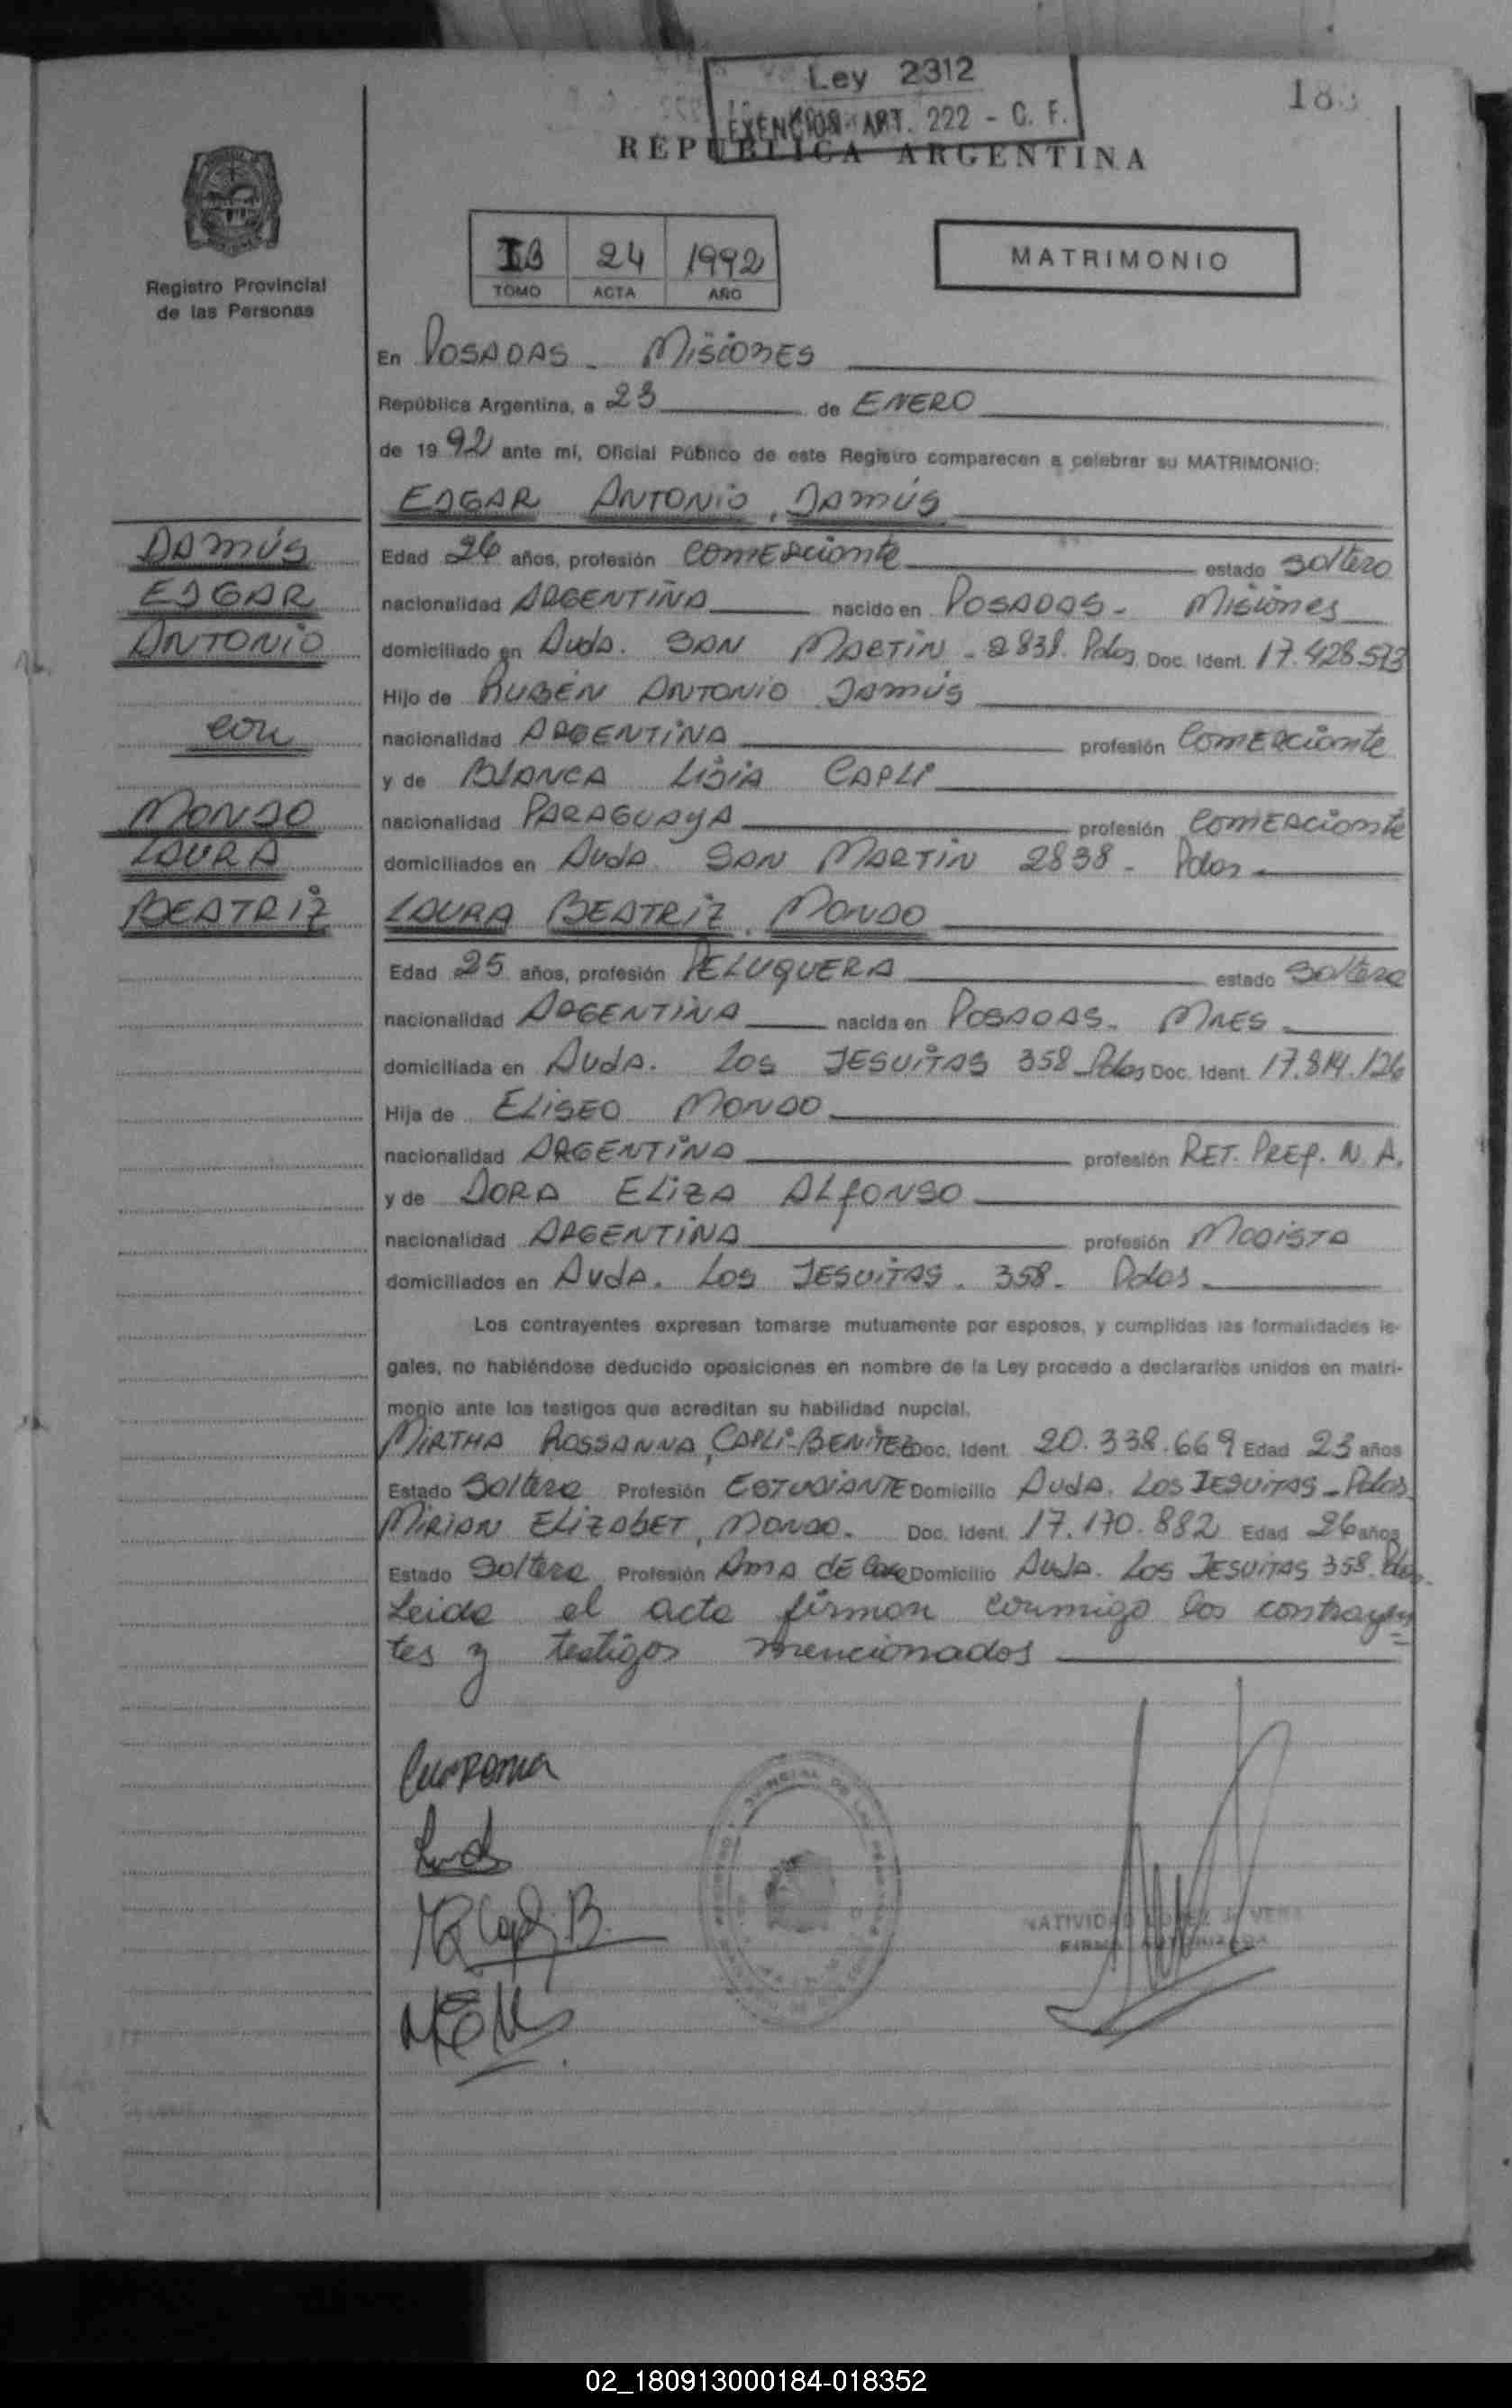 Ley 2312
EXENCION ART. 222 - C. F.
REPUBLICA ARGENTINA
Registro Provincial
de las Personas
24 1992
TOMO ACTA AÑO
MATRIMONIO
En POSADAS - MISIONES
República Argentina, a 23 de ENERO
de 1992 ante mí, Oficial Público de este Registro comparecen a celebrar su MATRIMONIO:
EDGAR ANTONIO, DAMÚS
DAMÚS
EDGAR
ANTONIO
con
MONSO
LAURA
BEATRIZ
Edad 26 años, profesión COMERCIANTE estado SOLTERO
nacionalidad ARGENTINA nacido en POSADAS - MISIONES
domiciliado en AVDA. SAN MARTIN - 2838. Pdas Doc. Ident. 17.428.573
Hijo de RUBÉN ANTONIO DAMÚS
nacionalidad ARGENTINA profesión COMERCIANTE
y de BLANCA LIDIA CAPLI
nacionalidad PARAGUAYA profesión COMERCIANTE
domiciliados en AVDA. SAN MARTIN 2838 - Pdas
LAURA BEATRIZ, MONSO
Edad 25 años, profesión PELUQUERA estado SOLTERA
nacionalidad ARGENTINA nacida en POSADAS - MNES
domiciliada en AVDA. LOS JESUITAS 358 Pdas Doc. Ident. 17.814.126
Hija de ELISEO MONSO
nacionalidad ARGENTINA profesión RET. PREF. N. A.
y de DORA ELIZA ALFONSO
nacionalidad ARGENTINA profesión MODISTA
domiciliados en AVDA. LOS JESUITAS - 358 - Pdas
Los contrayentes expresan tomarse mutuamente por esposos, y cumplidas las formalidades le-
gales, no habiéndose deducido oposiciones en nombre de la Ley procedo a declararlos unidos en matri-
monio ante los testigos que acreditan su habilidad nupcial.
MIRTHA ROSSANNA, CAPLI-BENITEZ Doc. Ident. 20.338.669 Edad 23 años
Estado SOLTERA Profesión ESTUDIANTE Domicilio AVDA. LOS JESUITAS - Pdas
MIRIAN ELIZABET, MONSO. Doc. Ident. 17.170.882 Edad 26 años
Estado SOLTERA Profesión AMA DE CASA Domicilio AVDA. LOS JESUITAS 358. Pdas.
Leida el acta firman conmigo los contrayen
tes y testigos mencionados
FIRMA AUTORIZADA
02_180913000184-018352